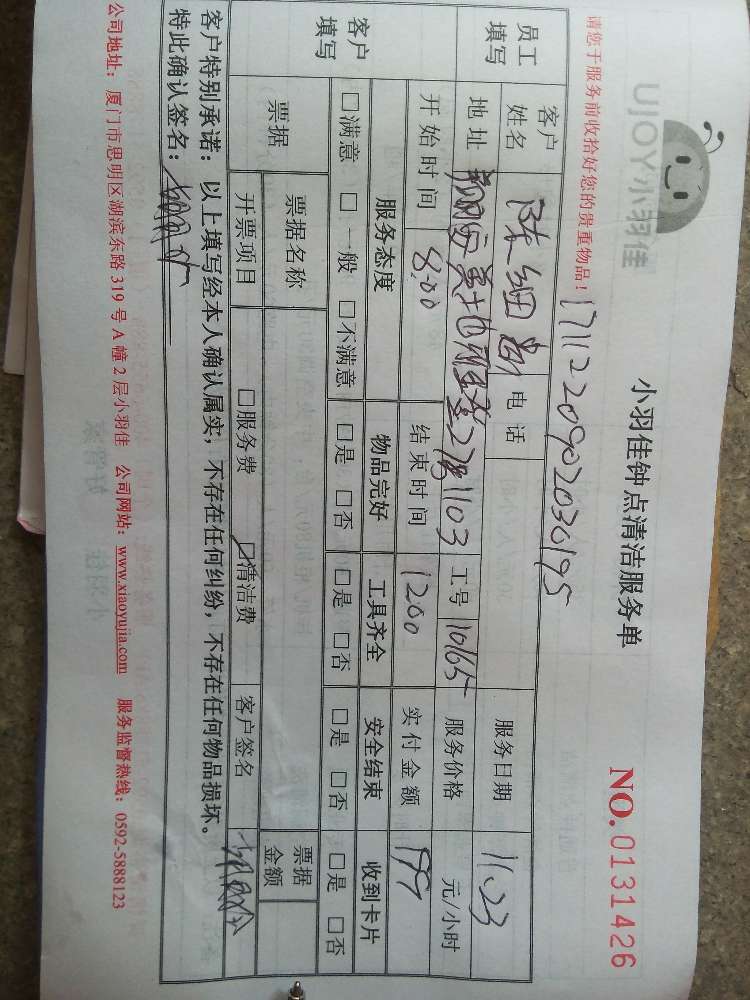 UJOY小羽佳
小羽佳钟点清洁服务单
NO. 0131426
请您于服务前收拾好您的贵重物品！
1711220902036195
员工填写
客户姓名 陈 电话 服务日期 11.23
地址 27阁1103 工号 10165 服务价格 元/小时
开始时间 8:00 结束时间 1200 实付金额 199
客户填写
服务态度 物品完好 工具齐全 安全结束 收到卡片
□满意 □一般 □不满意 □是 □否 □是 □否 □是 □否 □是 □否
票据 票据名称 票据金额
开票项目 □服务费 □清洁费 客户签名
客户特别承诺：以上填写经本人确认属实，不存在任何纠纷，不存在任何物品损坏。
特此确认签名：
公司地址：厦门市思明区湖滨东路 319 号 A 幢 2 层小羽佳 公司网站：www.xiaoyujia.com 服务监督热线：0592-5888123